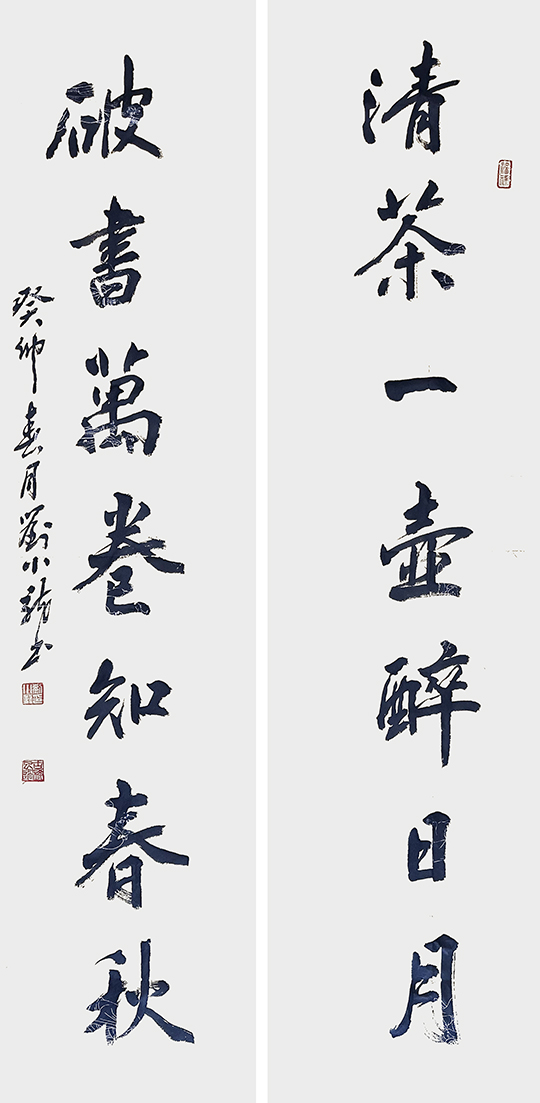 清茶一壺醉日月
破書萬卷知春秋
癸卯春月劉小龍書